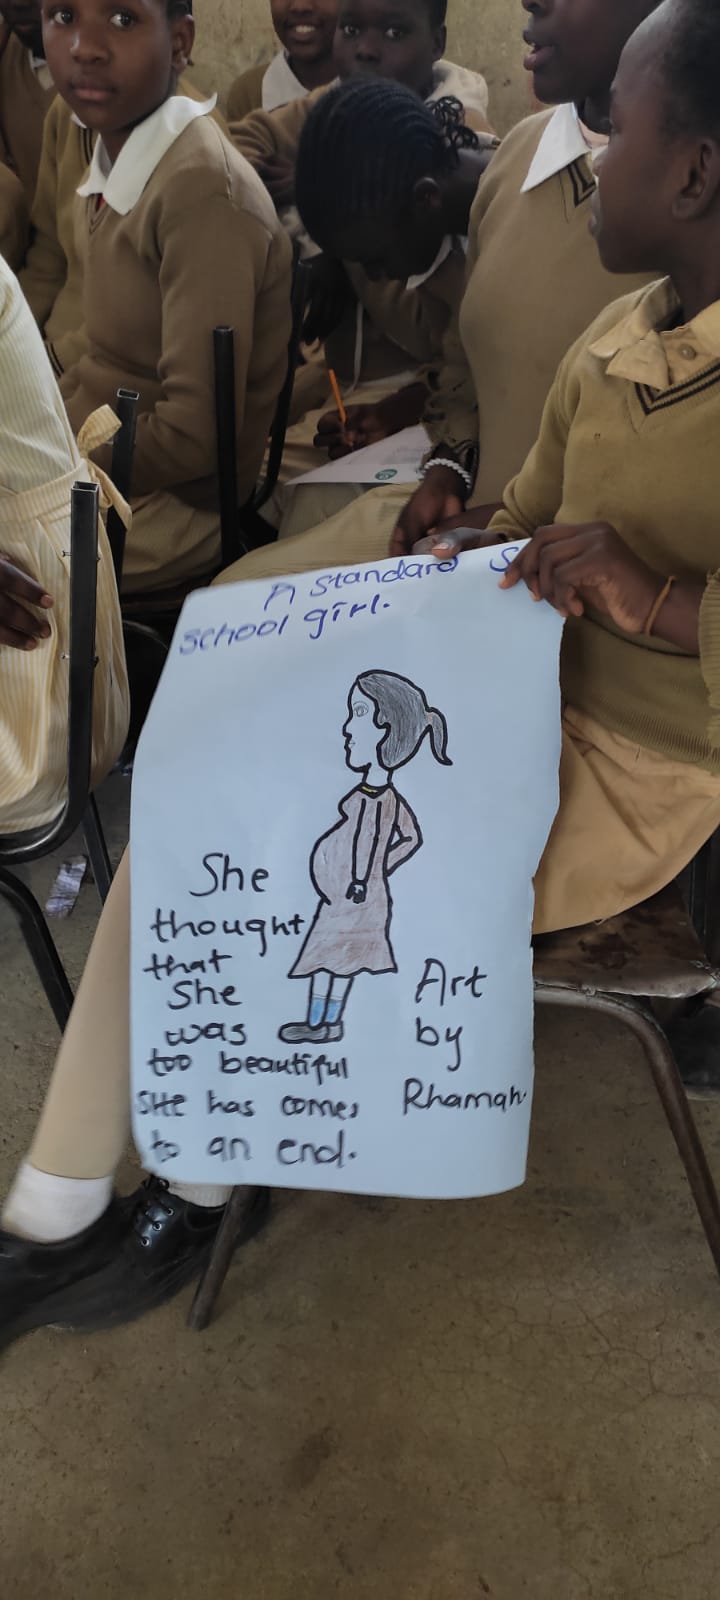 A Standard S
school girl.
She
thought
that
She
was
too beautiful
SHe has comes
to an end.
Art
by
Rhamah.